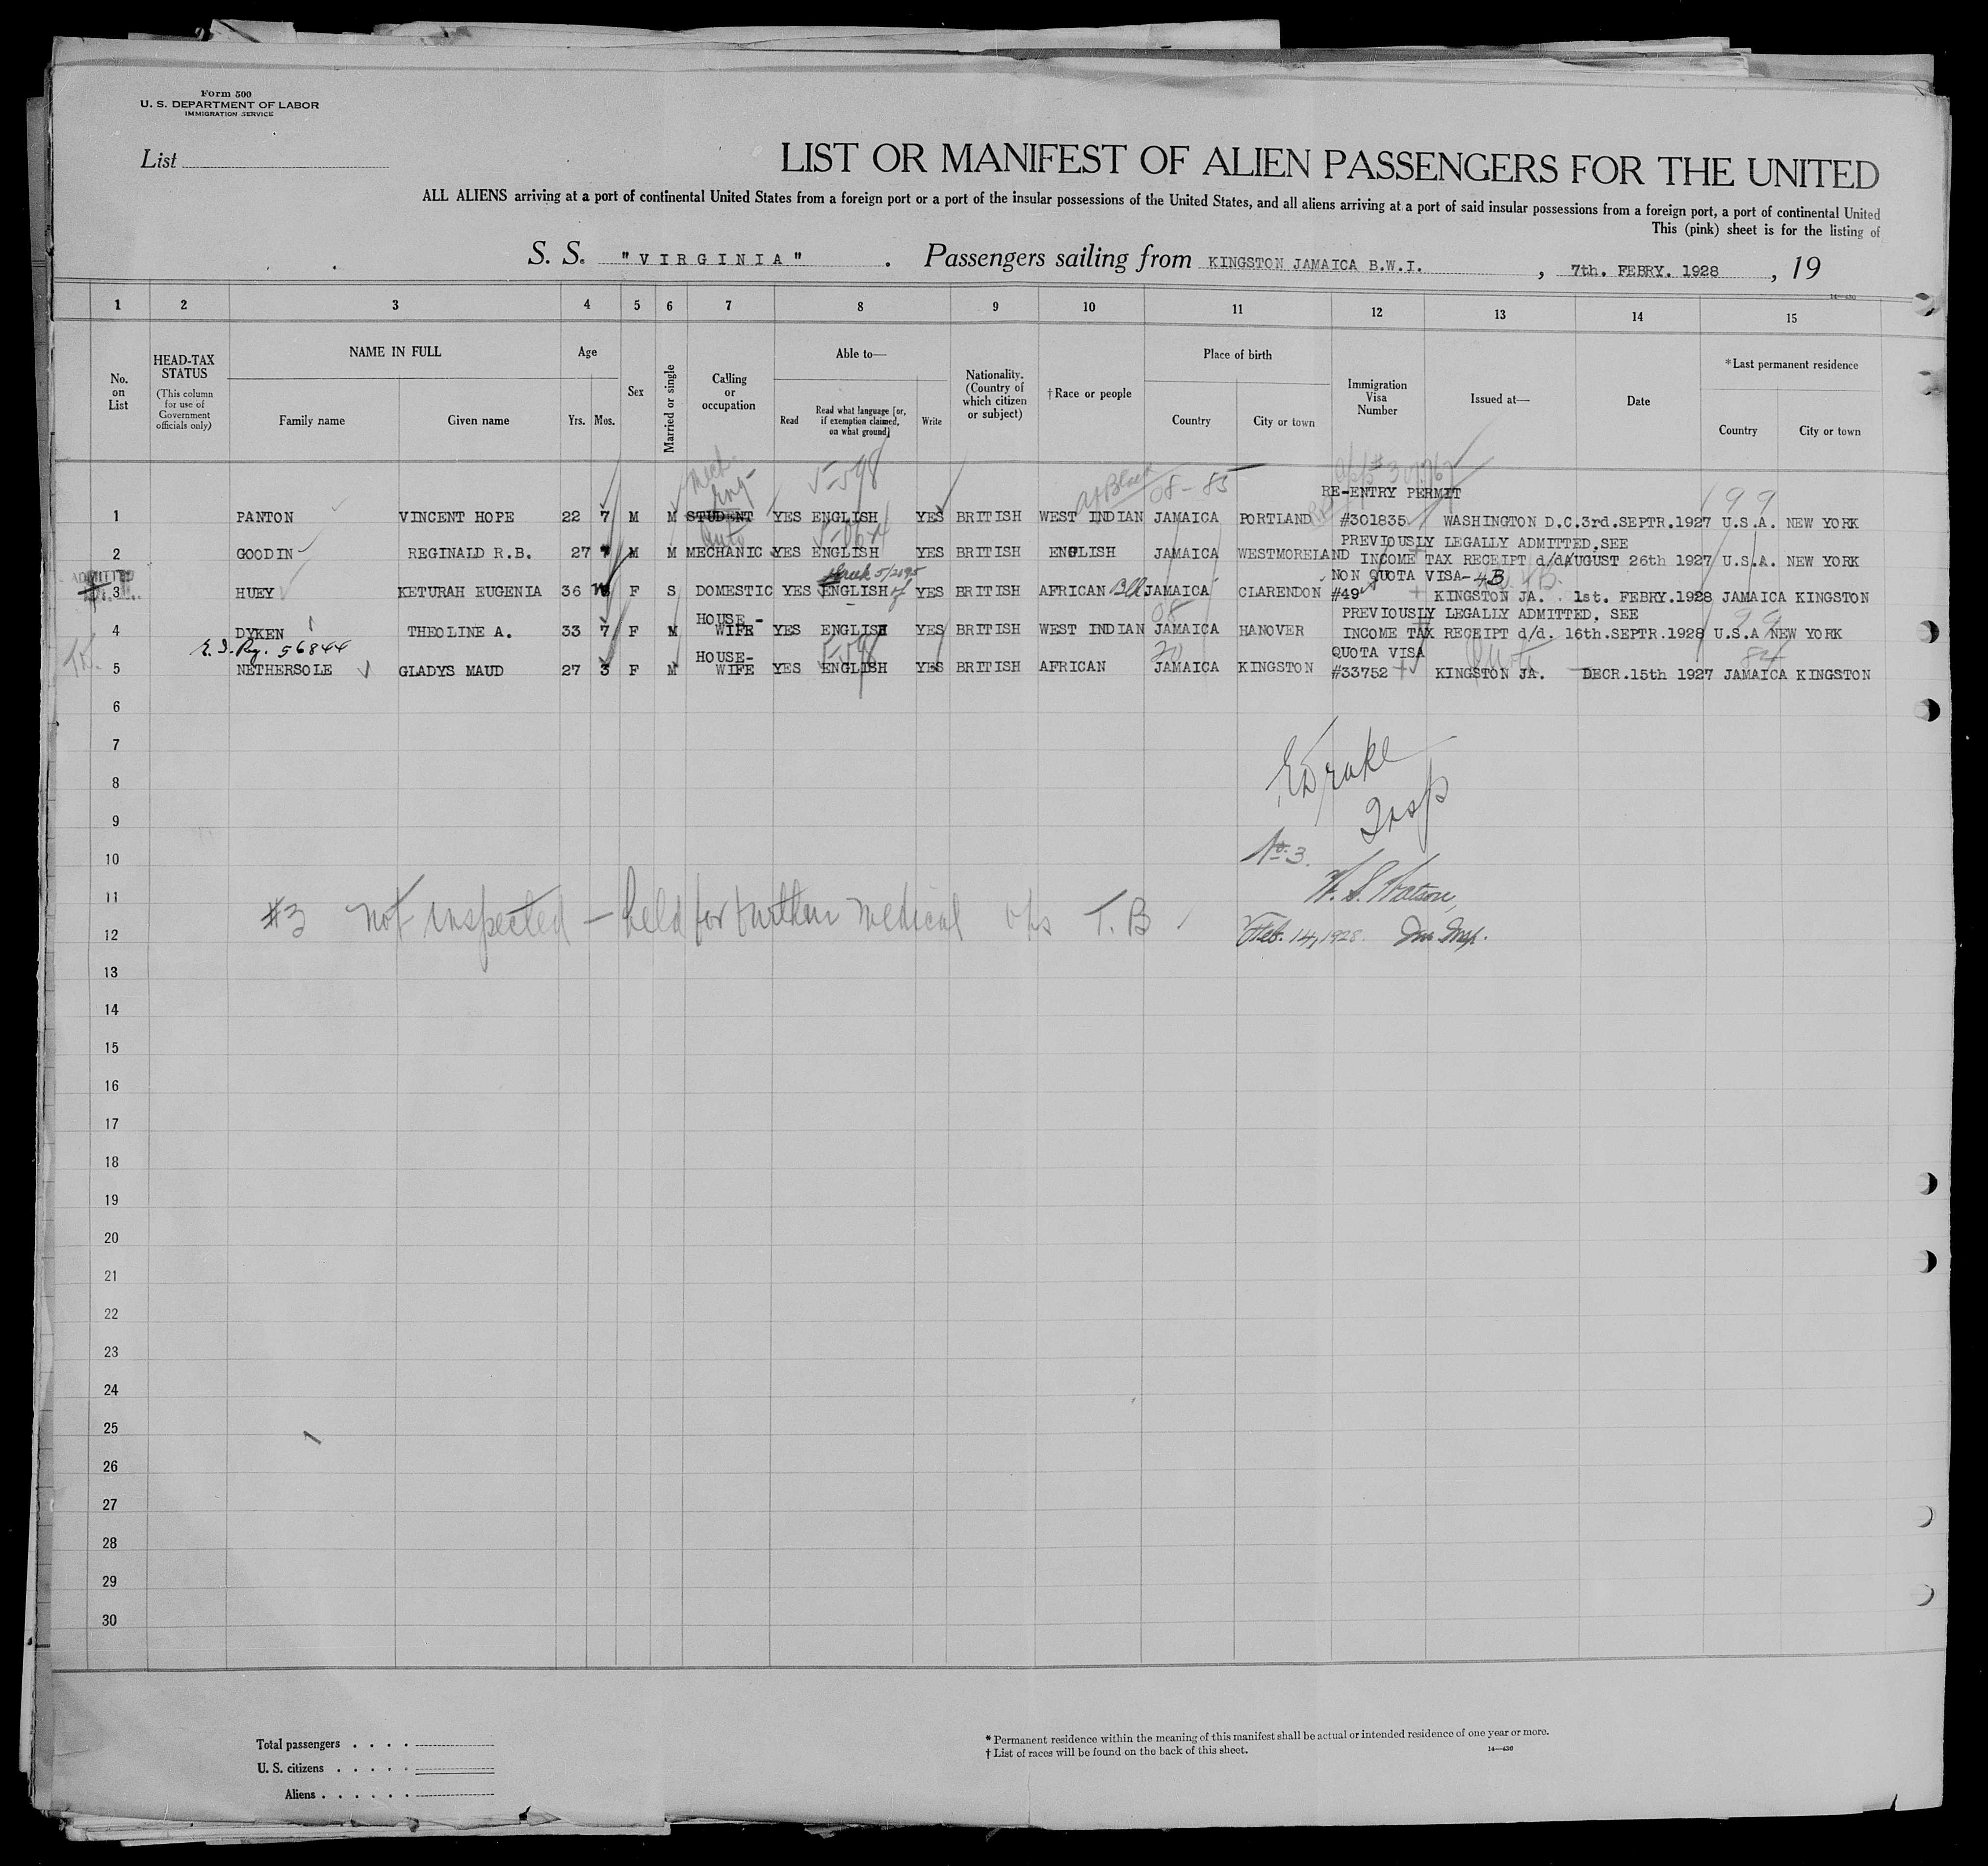 Form 500
U. S. DEPARTMENT OF LABOR
IMMIGRATION SERVICE
List
LIST OR MANIFEST OF ALIEN PASSENGERS FOR THE UNITED
ALL ALIENS arriving at a port of continental United States from a foreign port or a port of the insular possessions of the United States, and all aliens arriving at a port of said insular possessions from a foreign port, a port of continental United
This (pink) sheet is for the listing of
S. S. "VIRGINIA" . Passengers sailing from KINGSTON JAMAICA B.W.I. , 7th. FEBRY. 1928 , 19
14—430
1 2 3 4 5 6 7 8 9 10 11 12 13 14 15
No. on List
HEAD-TAX STATUS
(This column for use of Government officials only)
NAME IN FULL
Family name Given name
Age
Yrs. Mos.
Sex
Married or single
Calling or occupation
Able to—
Read
Read what language [or, if exemption claimed, on what ground]
Write
Nationality. (Country of which citizen or subject)
†Race or people
Place of birth
Country City or town
Immigration Visa Number
Issued at—
Date
*Last permanent residence
Country City or town
Mech. Eng- 5-598 Af Black 08-85
RE-ENTRY PERMIT 99
1 PANTON VINCENT HOPE 22 7 M M STUDENT YES ENGLISH YES BRITISH WEST INDIAN JAMAICA PORTLAND #301835 WASHINGTON D.C. 3rd.SEPTR.1927 U.S.A. NEW YORK
Auto PREVIOUSLY LEGALLY ADMITTED. SEE
2 GOODIN REGINALD R.B. 27 M M MECHANIC YES ENGLISH YES BRITISH ENGLISH JAMAICA WESTMORELAND INCOME TAX RECEIPT d/d AUGUST 26th 1927 U.S.A. NEW YORK
ADMITTED 5/2695 NON QUOTA VISA-4B
3 HUEY KETURAH EUGENIA 36 F S DOMESTIC YES ENGLISH YES BRITISH AFRICAN Blk JAMAICA CLARENDON #49 KINGSTON JA. 1st. FEBRY.1928 JAMAICA KINGSTON
HOUSE- 08 PREVIOUSLY LEGALLY ADMITTED. SEE 99
4 DYKEN THEOLINE A. 33 7 F M WIFE YES ENGLISH YES BRITISH WEST INDIAN JAMAICA HANOVER INCOME TAX RECEIPT d/d. 16th.SEPTR.1928 U.S.A NEW YORK
56844 HOUSE- 5-598 20 QUOTA VISA 84
5 NETHERSOLE GLADYS MAUD 27 3 F M WIFE YES ENGLISH YES BRITISH AFRICAN JAMAICA KINGSTON #33752 KINGSTON JA. DECR.15th 1927 JAMAICA KINGSTON
6
7
E Drake
8
Insp
9
10
No. 3.
11
W. S. Watson,
#3 not inspected — held for further medical T.B
12
Feb. 14, 1928. Im. Insp.
13
14
15
16
17
18
19
20
21
22
23
24
25
26
27
28
29
30
Total passengers . . . .
U. S. citizens . . . . .
Aliens . . . . . .
* Permanent residence within the meaning of this manifest shall be actual or intended residence of one year or more.
† List of races will be found on the back of this sheet.
14—430